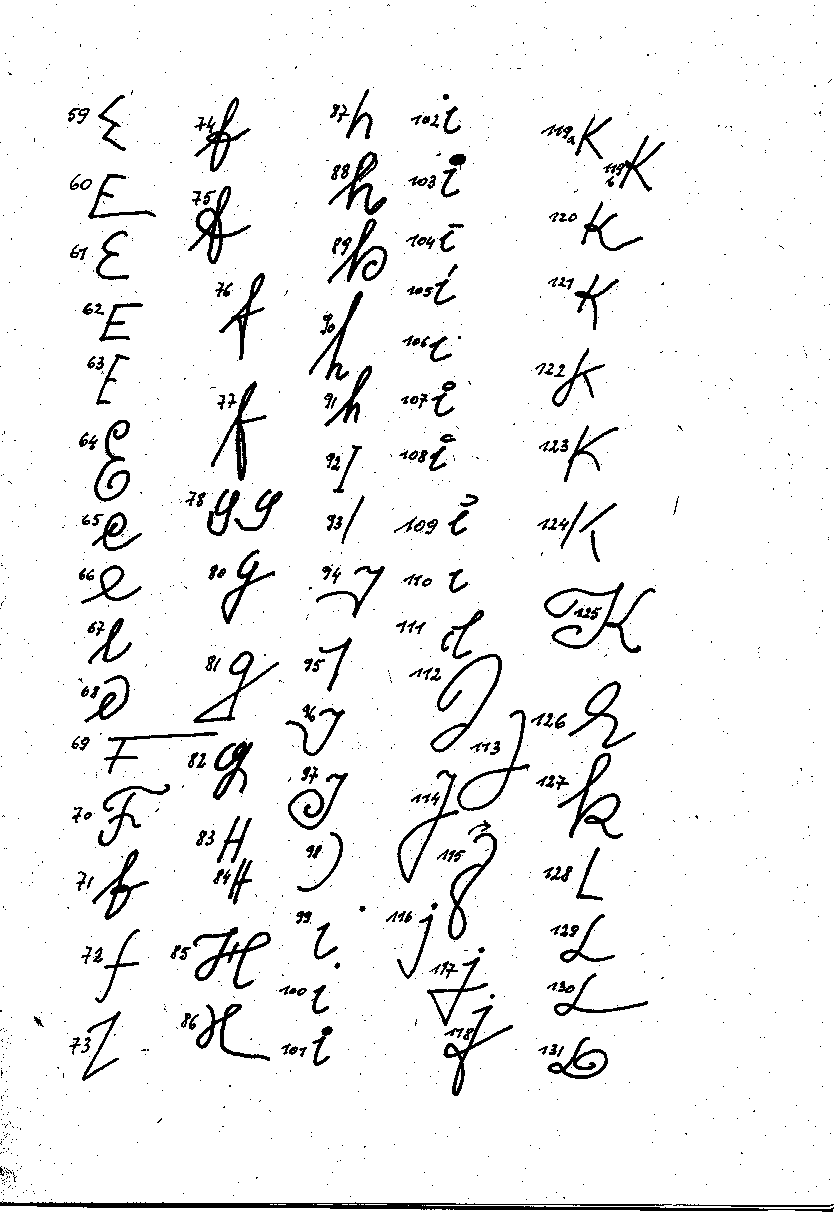 59 E
60 E
61 E
62 E
63 E
64 E
65 e
66 e
67 e
68 e
69 F
70 F
71 f
72 f
73
74 f
75 f
76 f
77 f
78 g g
80 g
81 g
82 g
83 H
84 H
85 H
86 H
87 h
88 h
89 h
90 h
91 h
92 I
93 I
94 I
95 I
96 I
97 I
98
99 i
100 i
101 i
102 i
103 i
104 i
105 i
106 i
107 i
108 i
109 i
110 i
111 i
112 J
113 J
114 J
115 J
116 j
117 j
118 j
119a K
119b K
120 K
121 K
122 K
123 K
124 K
125 K
126 k
127 k
128 L
129 L
130 L
131 L